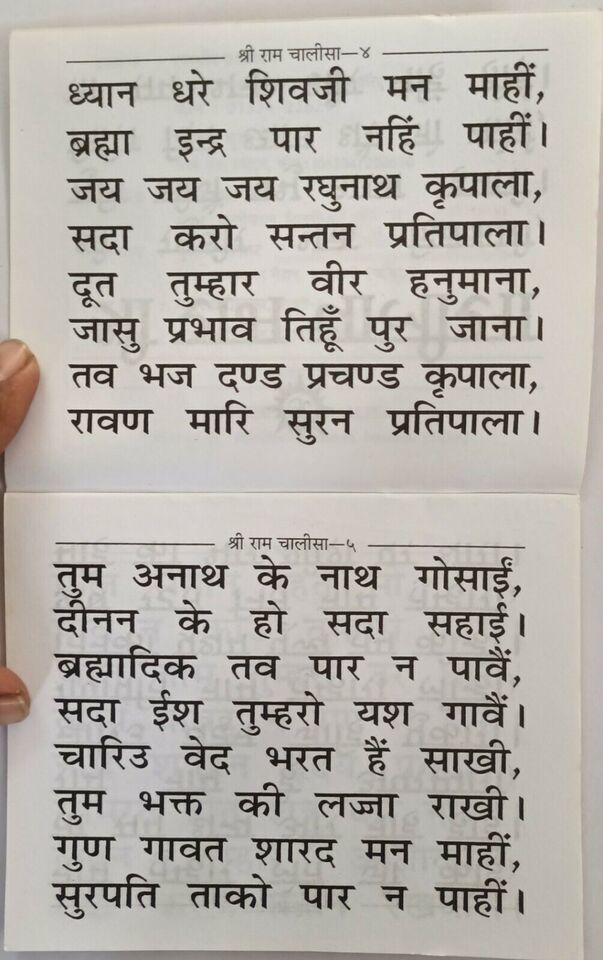 श्री राम चालीसा—४
ध्यान धरे शिवजी मन माहीं,
ब्रह्मा इन्द्र पार नहिं पाहीं।
जय जय जय रघुनाथ कृपाला,
सदा करो सन्तन प्रतिपाला।
दूत तुम्हार वीर हनुमाना,
जासु प्रभाव तिहूँ पुर जाना।
तव भज दण्ड प्रचण्ड कृपाला,
रावण मारि सुरन प्रतिपाला।
श्री राम चालीसा—५
तुम अनाथ के नाथ गोसाईं,
दीनन के हो सदा सहाई।
ब्रह्मादिक तव पार न पावैं,
सदा ईश तुम्हरो यश गावैं।
चारिउ वेद भरत हैं साखी,
तुम भक्त की लज्जा राखी।
गुण गावत शारद मन माहीं,
सुरपति ताको पार न पाहीं।